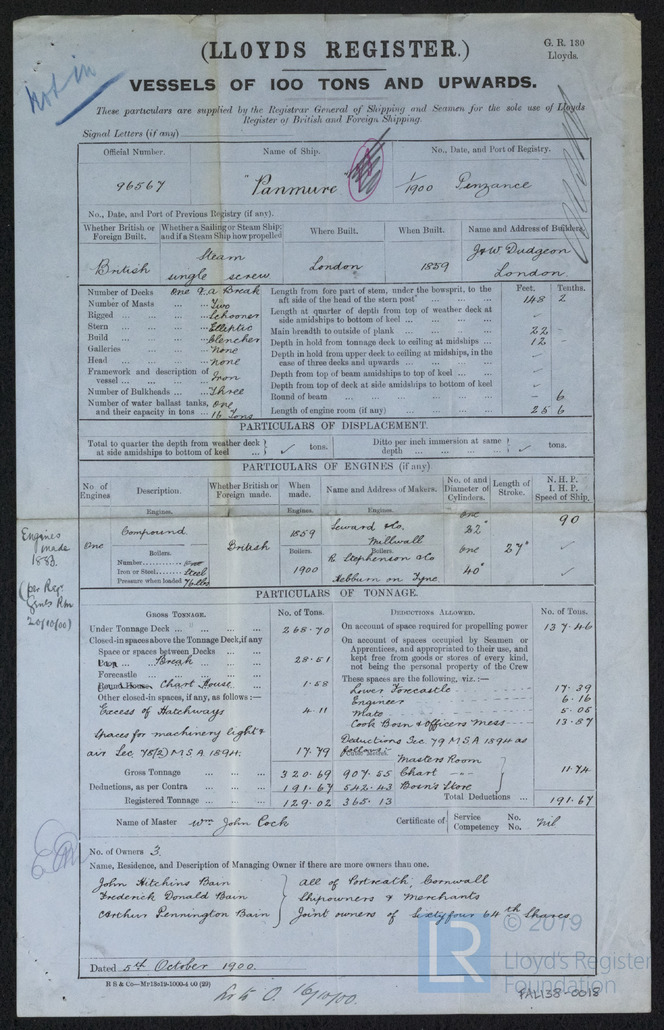 not in
(LLOYDS REGISTER.)
G. R. 130
Lloyds.
VESSELS OF 100 TONS AND UPWARDS.
These particulars are supplied by the Registrar General of Shipping and Seamen for the sole use of Lloyds
Register of British and Foreign Shipping.
Signal Letters (if any)
Official Number. Name of Ship. No., Date, and Port of Registry.
96567 "Panmure" 1/1900 Penzance
No., Date, and Port of Previous Registry (if any).
Whether British or Foreign Built. Whether a Sailing or Steam Ship; and if a Steam Ship how propelled Where Built. When Built. Name and Address of Builders.
British Steam single screw London 1859 J & W Dudgeon London.
Number of Decks One & a Break
Number of Masts ... Two
Rigged ... Schooner
Stern ... Elliptic
Build ... Clencher
Galleries ... None
Head ... None
Framework and description of vessel ... Iron
Number of Bulkheads ... Three
Number of water ballast tanks, and their capacity in tons ... One 16 Tons
Feet. Tenths.
Length from fore part of stem, under the bowsprit, to the aft side of the head of the stern post 148 2
Length at quarter of depth from top of weather deck at side amidships to bottom of keel ... ✓
Main breadth to outside of plank ... 22 -
Depth in hold from tonnage deck to ceiling at midships ... 12 -
Depth in hold from upper deck to ceiling at midships, in the case of three decks and upwards ... ✓
Depth from top of beam amidships to top of keel ... ✓
Depth from top of deck at side amidships to bottom of keel ✓
Round of beam ... - 6
Length of engine room (if any) ... 25 6
PARTICULARS OF DISPLACEMENT.
Total to quarter the depth from weather deck at side amidships to bottom of keel ... ✓ tons. Ditto per inch immersion at same depth ... ✓ tons.
PARTICULARS OF ENGINES (if any).
No. of Engines Description. Whether British or Foreign made. When made. Name and Address of Makers. No. of and Diameter of Cylinders. Length of Stroke. N. H. P. I. H. P. Speed of Ship.
Engines. Engines. Engines.
One Compound British 1859 Seward & Co. Millwall One 22" 27" 90
Boilers. Boilers. Boilers.
Number One
Iron or Steel Steel
Pressure when loaded 76 lbs
1900 R Stephenson & Co Hebburn on Tyne One 40" ✓
Engines made 1883. (per Rep. 20/10/00)
PARTICULARS OF TONNAGE.
GROSS TONNAGE. No. of Tons.
Under Tonnage Deck ... 268.70
Closed-in spaces above the Tonnage Deck, if any
Space or spaces between Decks ...
Poop Break ... 28.51
Forecastle ...
Round House Chart House 1.58
Other closed-in spaces, if any, as follows:—
Excess of Hatchways 4.11
Spaces for machinery light & air Sec. 78(2) M.S.A. 1894. 17.79
Gross Tonnage ... 320.69 907.55
Deductions, as per Contra ... 191.67 542.43
Registered Tonnage ... 129.02 365.13
DEDUCTIONS ALLOWED. No. of Tons.
On account of space required for propelling power 137.46
On account of spaces occupied by Seamen or Apprentices, and appropriated to their use, and kept free from goods or stores of every kind, not being the personal property of the Crew
These spaces are the following, viz.:—
Lower Forecastle 17.39
Engineer 6.16
Mate 5.05
Cook Bosn & Officers Mess 13.87
Deductions Sec. 79 M S A 1894 as follows:
Masters Room
Chart -- 11.74
Bosn's Store
Total Deductions ... 191.67
Name of Master Wm John Cock
Certificate of Service No.
Competency No. Nil
No. of Owners 3.
Name, Residence, and Description of Managing Owner if there are more owners than one.
John Hitchins Bain All of Portreath, Cornwall
Frederick Donald Bain Shipowners & Merchants
Arthur Pennington Bain Joint owners of Sixtyfour 64th Shares
Dated 5th October 1900.
B S & Co—
16/10/00.
© 2019
LR
Lloyd's Register
Foundation
PAL138-0018